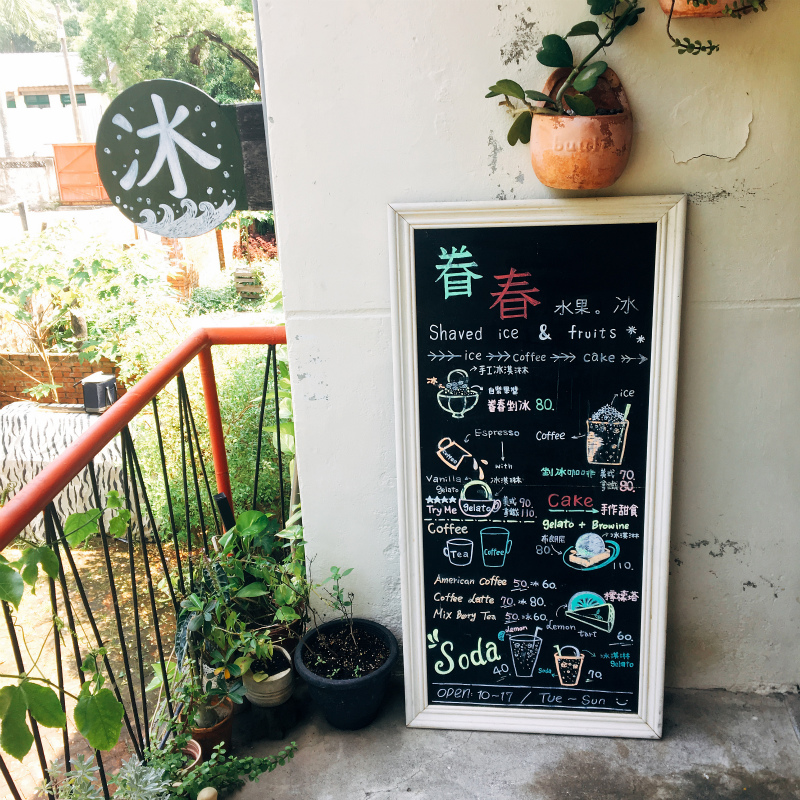 冰
眷春 水果。冰
Shaved ice & fruits
ice coffee cake
手工冰淇淋
冰
自製果醬
眷春剉冰 80.
ice
Espresso
Coffee
coffee
with
冰淇淋
Vanilla
gelato
剉冰咖啡 美式 70.
拿鐵 80.
Try Me
gelato
美式 90.
拿鐵 110.
Cake
手作甜食
gelato + Browine
Coffee
Tea
Coffee
布朗尼
80
冰淇淋
110.
American Coffee 50. 冰 60.
Coffee Latte 70. 冰 80.
Mix Berry Tea 50. 冰 60.
檸檬塔
Lemon
tart
60.
Soda
Lemon
40
Soda
冰淇淋
Gelato
70.
OPEN: 10~17 / Tue ~ Sun